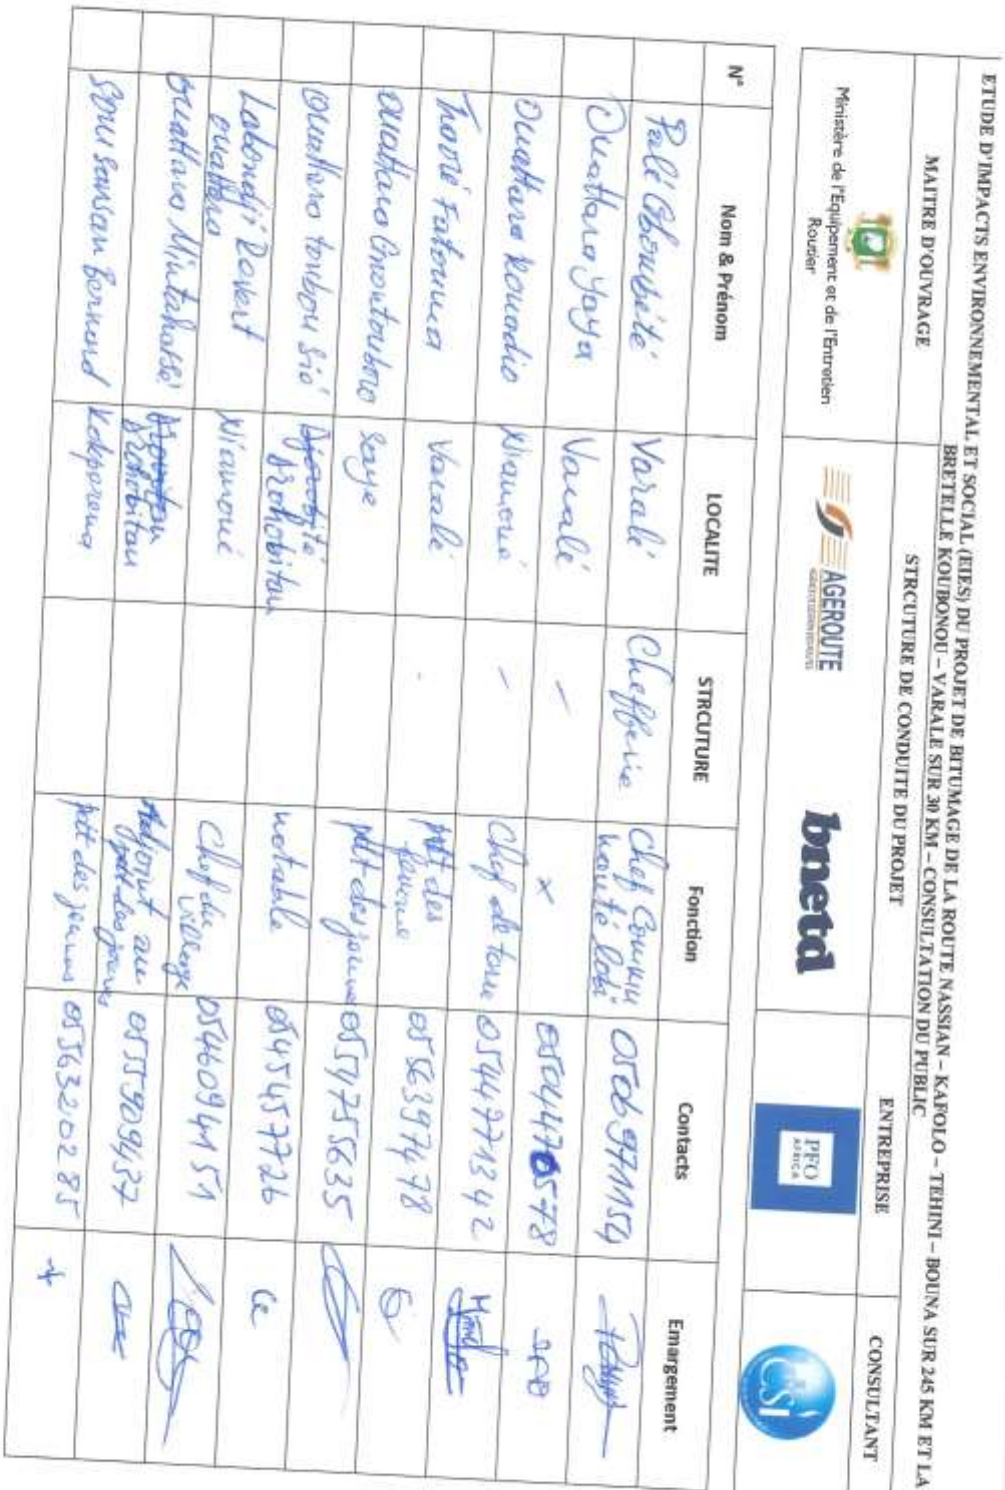 ETUDE D'IMPACTS ENVIRONNEMENTAL ET SOCIAL (EIES) DU PROJET DE BITUMAGE DE LA ROUTE NASSIAN – KAFOLO – TEHINI – BOUNA SUR 245 KM ET LA
BRETELLE KOUBONOU – VARALE SUR 30 KM – CONSULTATION DU PUBLIC
MAITRE D'OUVRAGE STRCUTURE DE CONDUITE DU PROJET ENTREPRISE CONSULTANT
Ministère de l'Equipement et de l'Entretien
Routier
AGEROUTE
bnetd
PFO
AFRICA
CSI
N° Nom & Prénom LOCALITE STRCUTURE Fonction Contacts Emargement
Palé Varalé Chefferie Chef 0506971154
Ouattara Yaya Varalé – x 0504470578
Ouattara Kouadio Niamoué – Chef de terre 0544771342
Traoré Fatouma Varalé pdt des femme 0556397478
Ouattara Saye pdt des jeunes 0554755635
Ouattara Sié notable 0545457726
Labondji Robert
ouattara
Niamoué Chef du
village
0546094151
Ouattara Adjoint au
pdt des jeunes
0555909437
Bernard Kokporena pdt des jeunes 0556320285